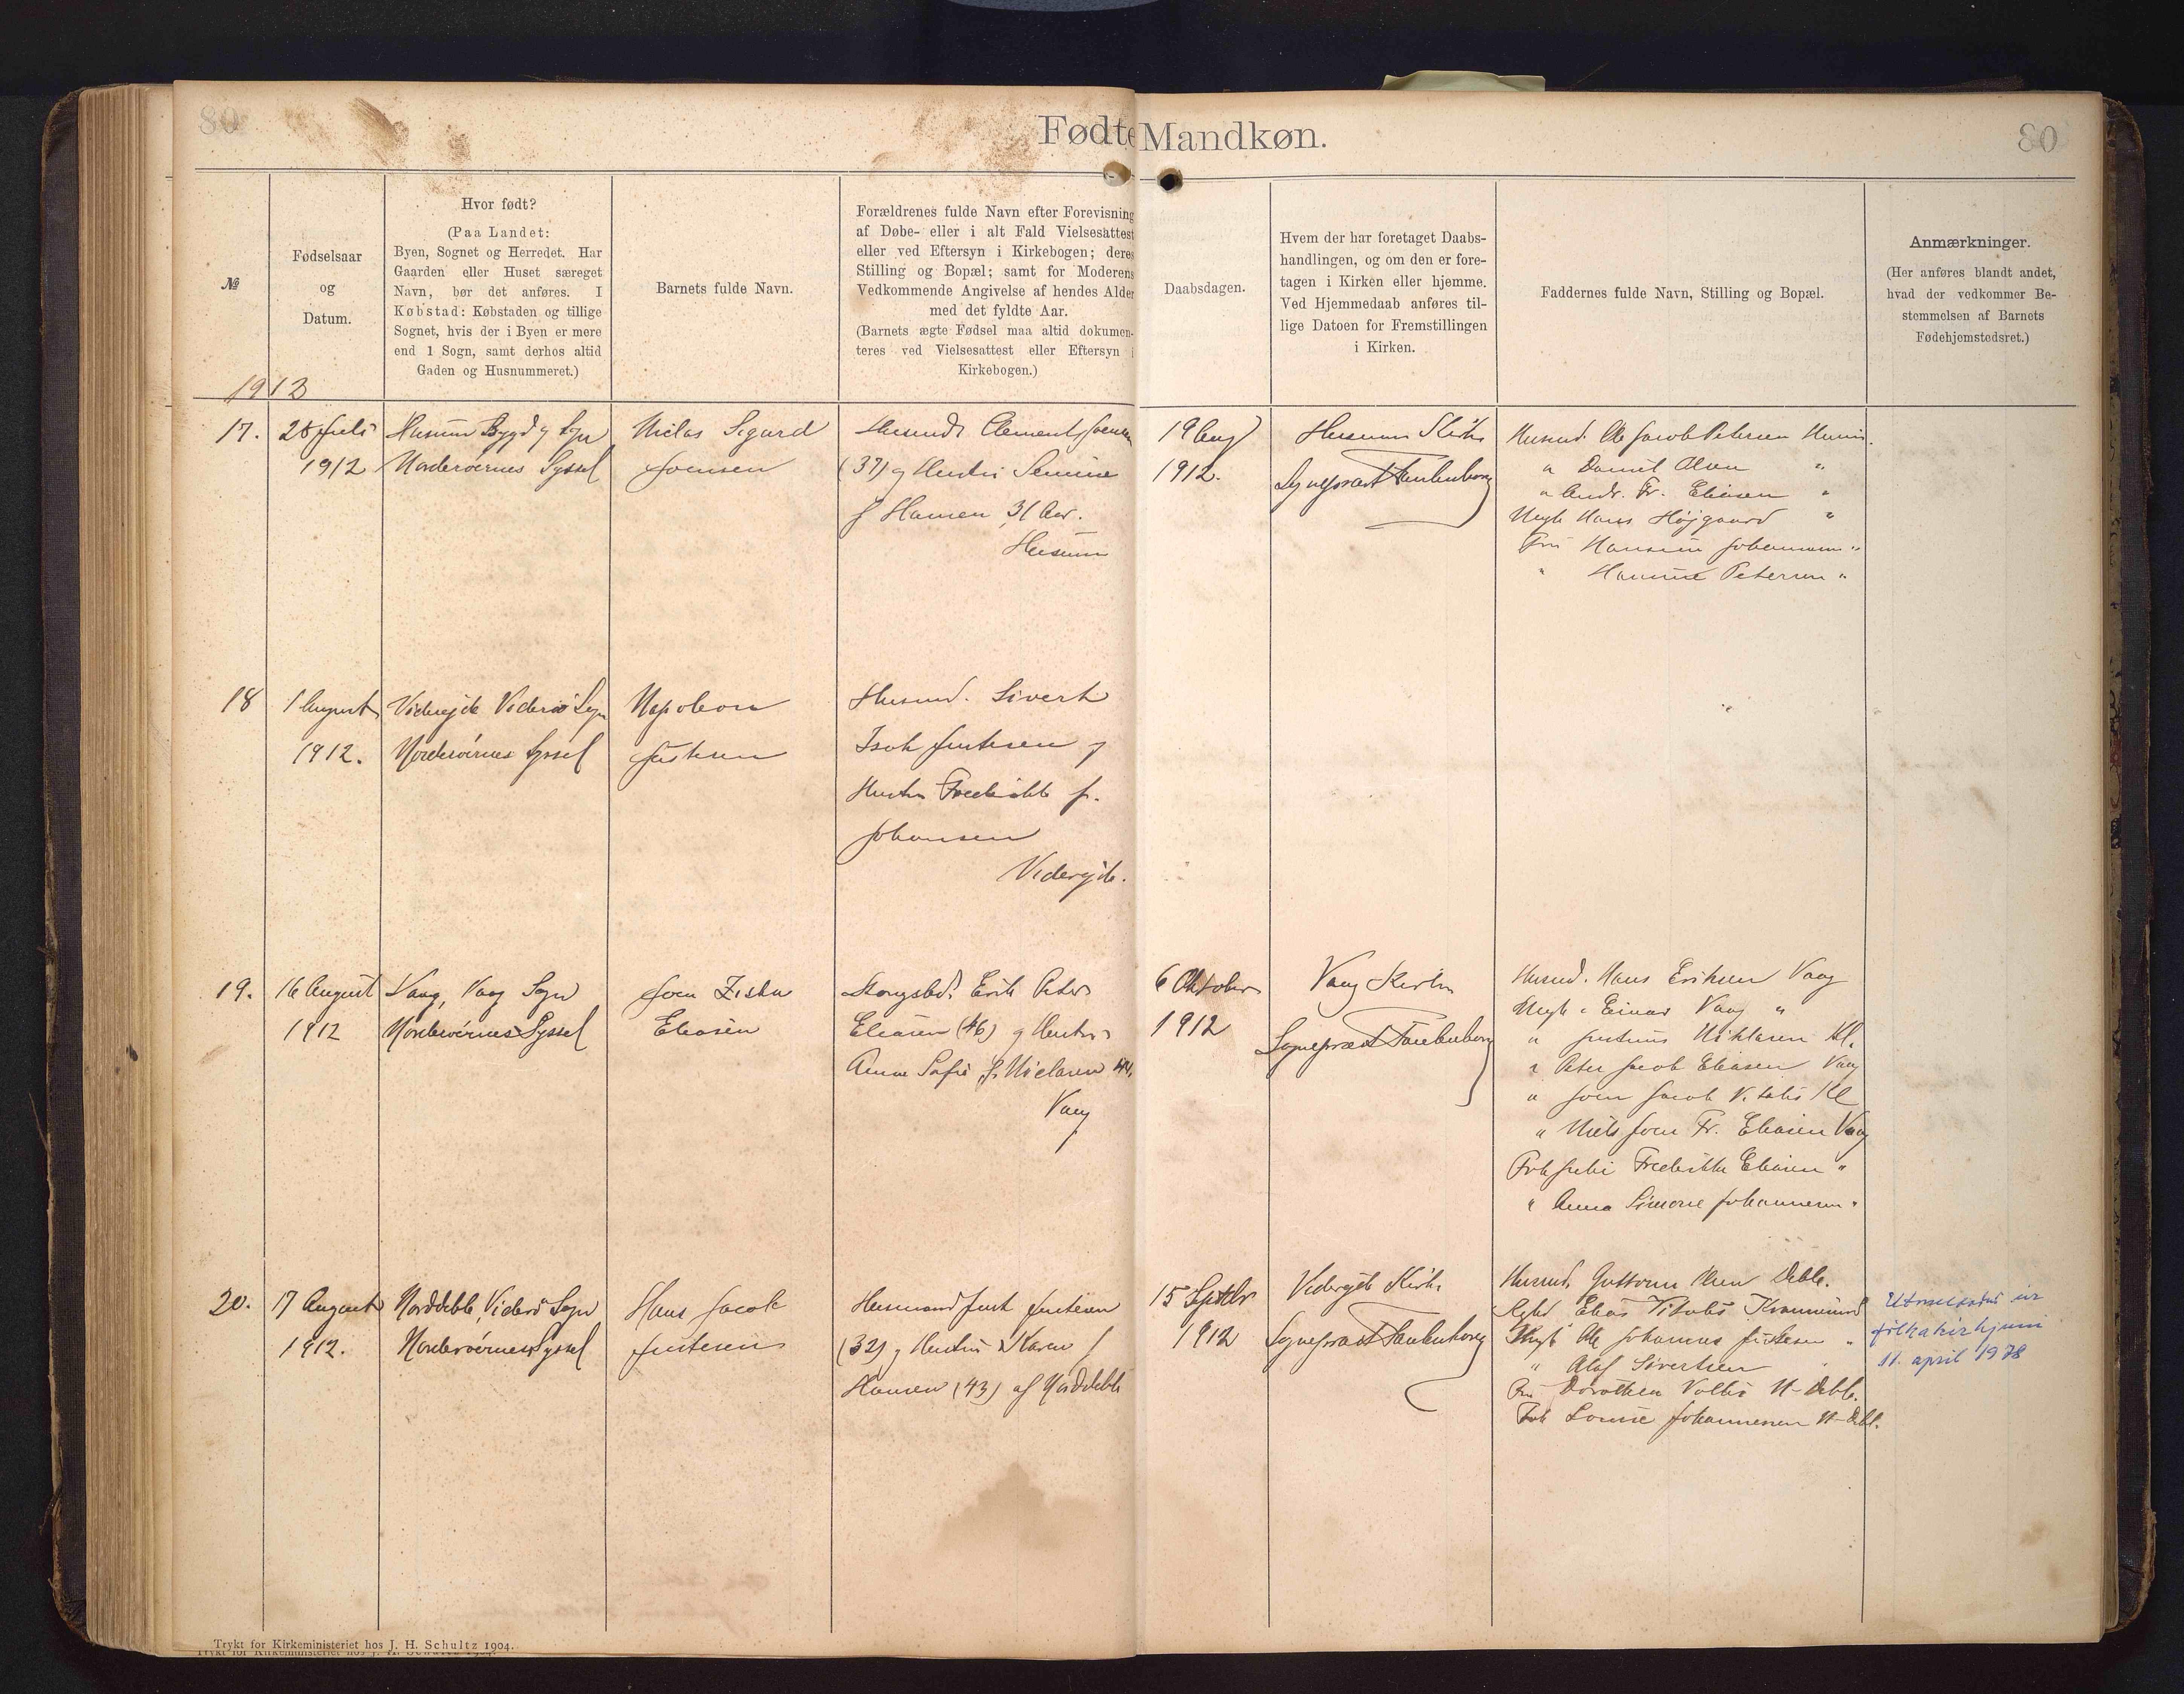 80
Fødte Mandkøn.
80
№
Fødselsaar
og
Datum.
Hvor født?
(Paa Landet:
Byen, Sognet og Herredet. Har
Gaarden eller Huset særeget
Navn, bør det anføres. I
Købstad: Købstaden og tillige
Sognet, hvis der i Byen er mere
end 1 Sogn, samt derhos altid
Gaden og Husnummeret.)
Barnets fulde Navn.
Forældrenes fulde Navn efter Forevisning
af Døbe- eller i alt Fald Vielsesattest
eller ved Eftersyn i Kirkebogen; deres
Stilling og Bopæl; samt for Moderens
Vedkommende Angivelse af hendes Alder
med det fyldte Aar.
(Barnets ægte Fødsel maa altid dokumen-
teres ved Vielsesattest eller Eftersyn i
Kirkebogen.)
Daabsdagen.
Hvem der har foretaget Daabs-
handlingen, og om den er fore-
tagen i Kirken eller hjemme.
Ved Hjemmedaab anføres til-
lige Datoen for Fremstillingen
i Kirken.
Faddernes fulde Navn, Stilling og Bopæl.
Anmærkninger.
(Her anføres blandt andet,
hvad der vedkommer Be-
stemmelsen af Barnets
Fødehjemstedsret.)
1912
17.
28 Juli
1912
Husum Bygd og Sogn
Norderøernes Syssel
Niclas Sigurd
Joensen
Husmd. Clement Joensen
(37) og Hustru
f Hansen 31 Aar.
Husum
19 Aug
1912.
Husum Kirke
Sognepræst Faulenborg
Husmd. Ole Jacob Petersen Husum.
" Daniel Olsen "
" Andr. Fr. Eliasen "
Ungk Hans Højgaard "
Fru Johannesen "
" Petersen "
18
1 August
1912.
Viderejde Viderø Sogn
Norderøernes Syssel
Napoleon
Justesen
Husmd. Sivert
Isak Justesen og
Hustru Frederikke f.
Johansen
Viderejde.
19.
16 August
1912
Vaag, Vaag Sogn
Norderøernes Syssel
Joen Zista
Eliasen
Kongsbd. Erik Peter
Eliasen (46) og Hustru
Anna Sofie f. Niclasen 44.
Vaag
6 Oktober
1912
Vaag Kirke
Sognepræst Faulenborg
Husmd. Hans Eriksen Vaag
Ungk. Einar Vaag "
" Justinus Niklasen Kl.
" Peter Jacob Eliasen Vaag
" Joen Jacob Vitalis Kl
" Niels Joen Fr. Eliasen Vaag
Frk Julie Frederikke Eliasen "
" Anna Simone Johannesen "
20.
17 August
1912.
Norddeble, Viderø Sogn
Norderøernes Syssel
Hans Jacob
Justesen
Husmand Just Justesen
(32) og Hustru Karen f
Hansen (43) af Norddeble
15 Septbr
1912
Viderejde Kirke
Sognepræst Faulenborg
Husmd. Guttorm Olsen Deble.
Elias Vitalis
Ungk Ole Johannes Justesen "
" Olaf Sivertsen "
Fru Dorothea N-Deble.
Frk Louise Johannesen N-Debl.
Útmeldaður úr
fólkakirkjuni
11. april 1978
Trykt for Kirkeministeriet hos J. H. Schultz 1904.